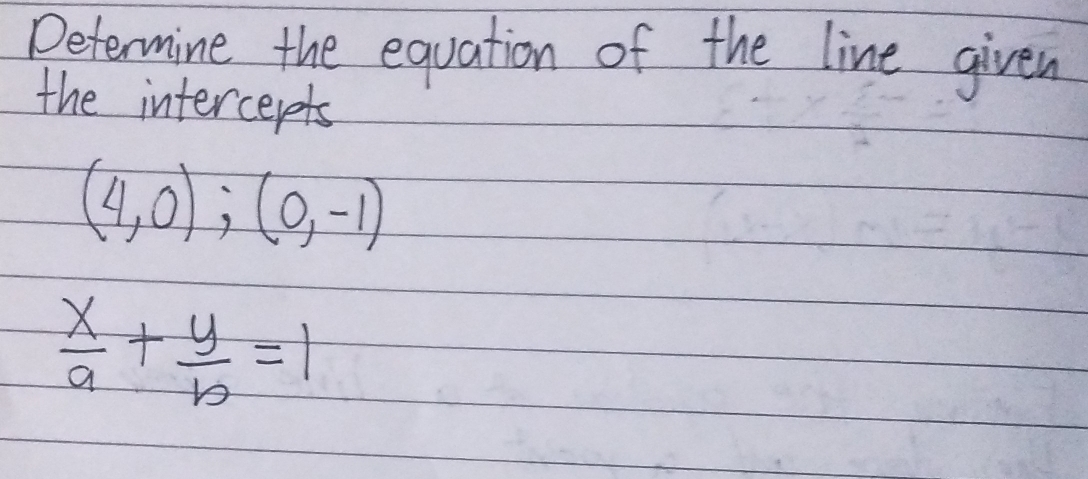 Determine the equation of the line given
the intercepts
(4,0) ; (0,-1)
x/a + y/b = 1